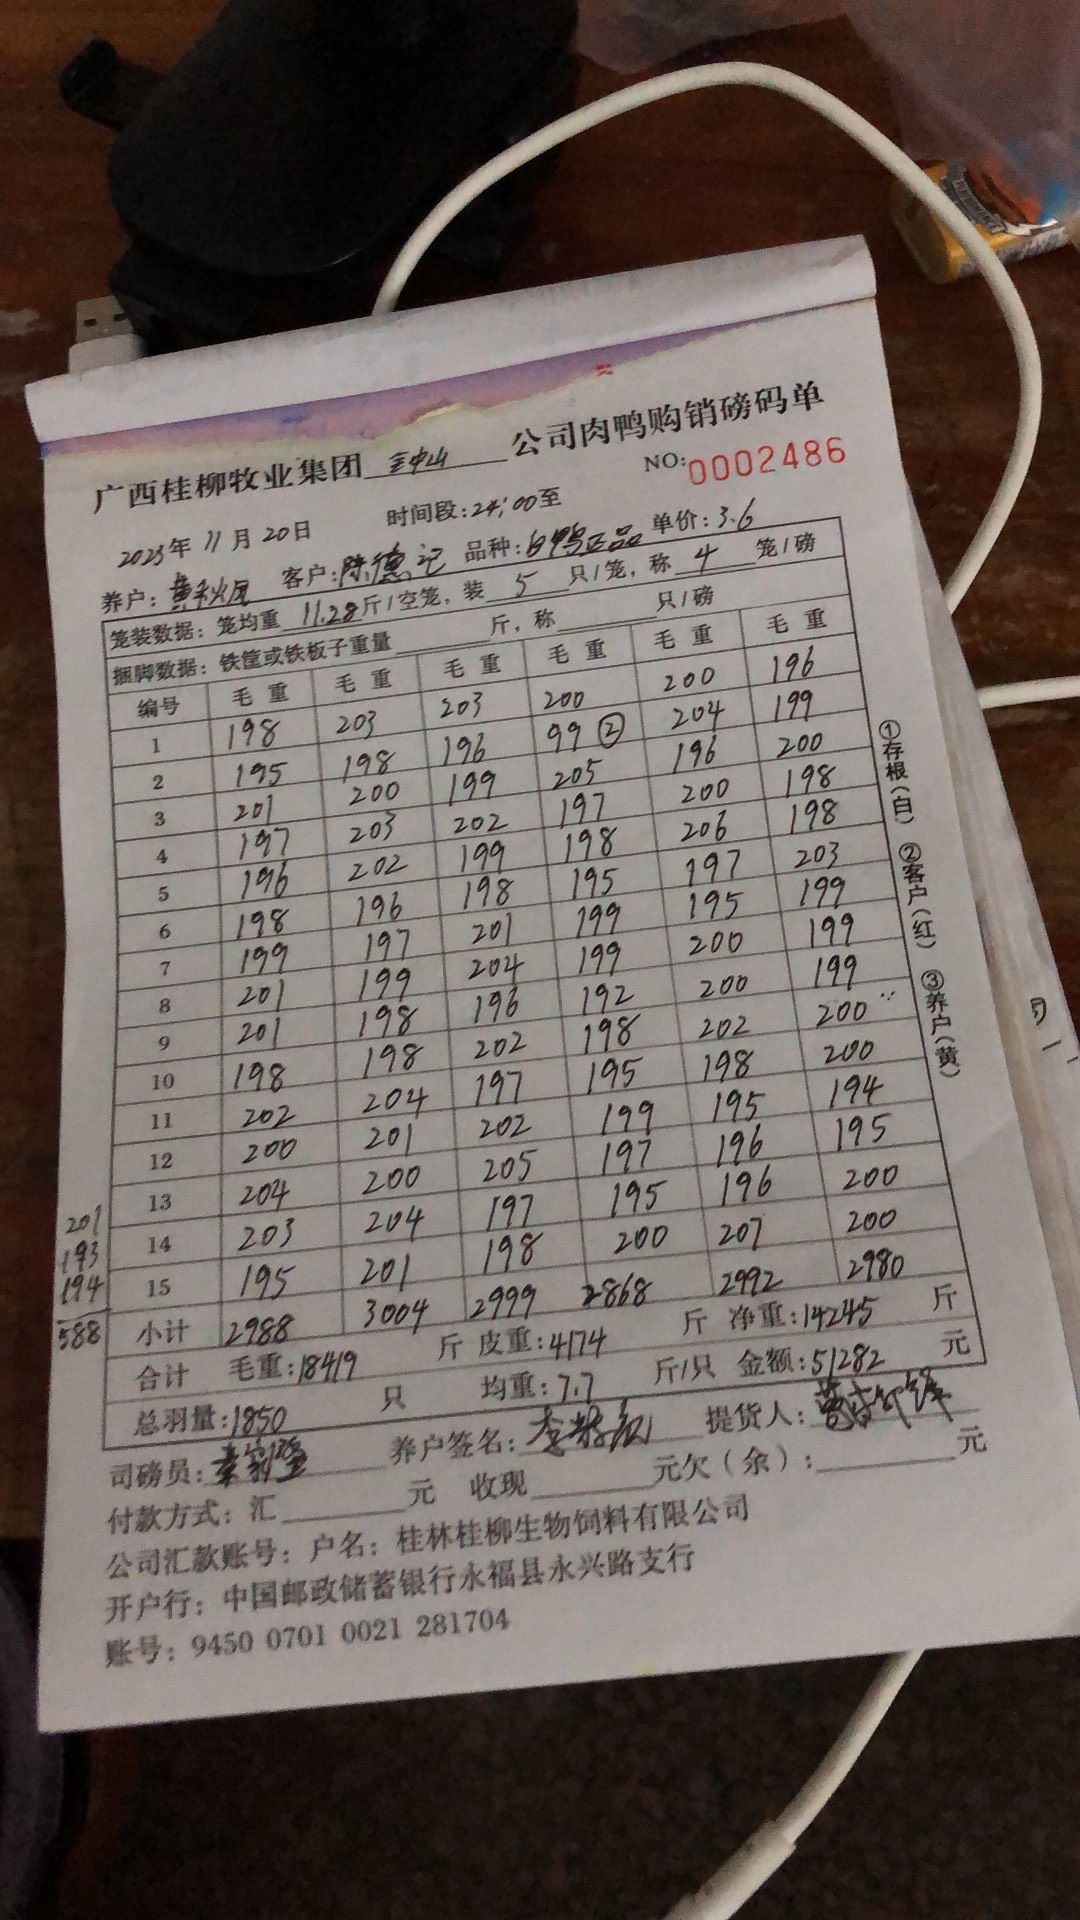 广西桂柳牧业集团 钟山 公司肉鸭购销磅码单
NO:0002486
2023年 11月 20日 时间段:24:00至
养户: 黄秋凤 客户: 陈德记 品种: 白鸭正品 单价: 3.6
笼装数据: 笼均重 11.28 斤/空笼, 装 5 只/笼, 称 4 笼/磅
捆脚数据: 铁筐或铁板子重量 斤, 称 只/磅
编号 毛重 毛重 毛重 毛重 毛重 毛重
1 198 203 203 200 200 196
2 195 198 196 99② 204 199
3 201 200 199 205 196 200
4 197 203 202 197 200 198
5 196 202 199 198 206 198
6 198 196 198 195 197 203
7 199 197 201 199 195 199
8 201 199 204 199 200 199
9 201 198 196 192 200 199
10 198 198 202 198 202 200
11 202 204 197 195 198 200
12 200 201 202 199 195 194
13 204 200 205 197 196 195
14 203 204 197 195 196 200
15 195 201 198 200 207 200
小计 2988 3004 2999 2868 2992 2980
201
193
194
588
合计 毛重: 18419 斤 皮重: 4174 斤 净重: 14245 斤
总羽量: 1850 只 均重: 7.7 斤/只 金额: 51282 元
司磅员: 养户签名: 提货人:
付款方式: 汇 元 收现 元欠(余): 元
公司汇款账号: 户名: 桂林桂柳生物饲料有限公司
开户行: 中国邮政储蓄银行永福县永兴路支行
账号: 9450 0701 0021 281704
①存根(白) ②客户(红) ③养户(黄)